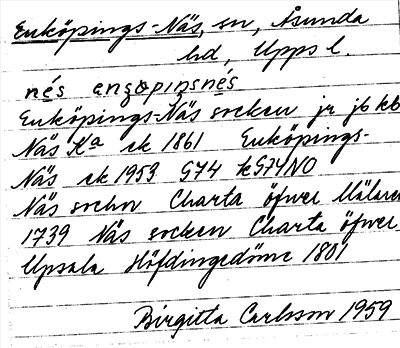 Enköpings-Näs, sn, Åsunda
hd, Upps l.
nés enɡøpiŋsnés
Enköpings-Näs socken jr jb kb
Näs Ka ek 1861 Enköpings-
Näs ek 1953 G74 kG74NO
Näs sochn Charta öfwer Mälaren
1739 Näs socken Charta öfwer
Upsala Höfdingedöme 1801
Birgitta Carlsson 1959